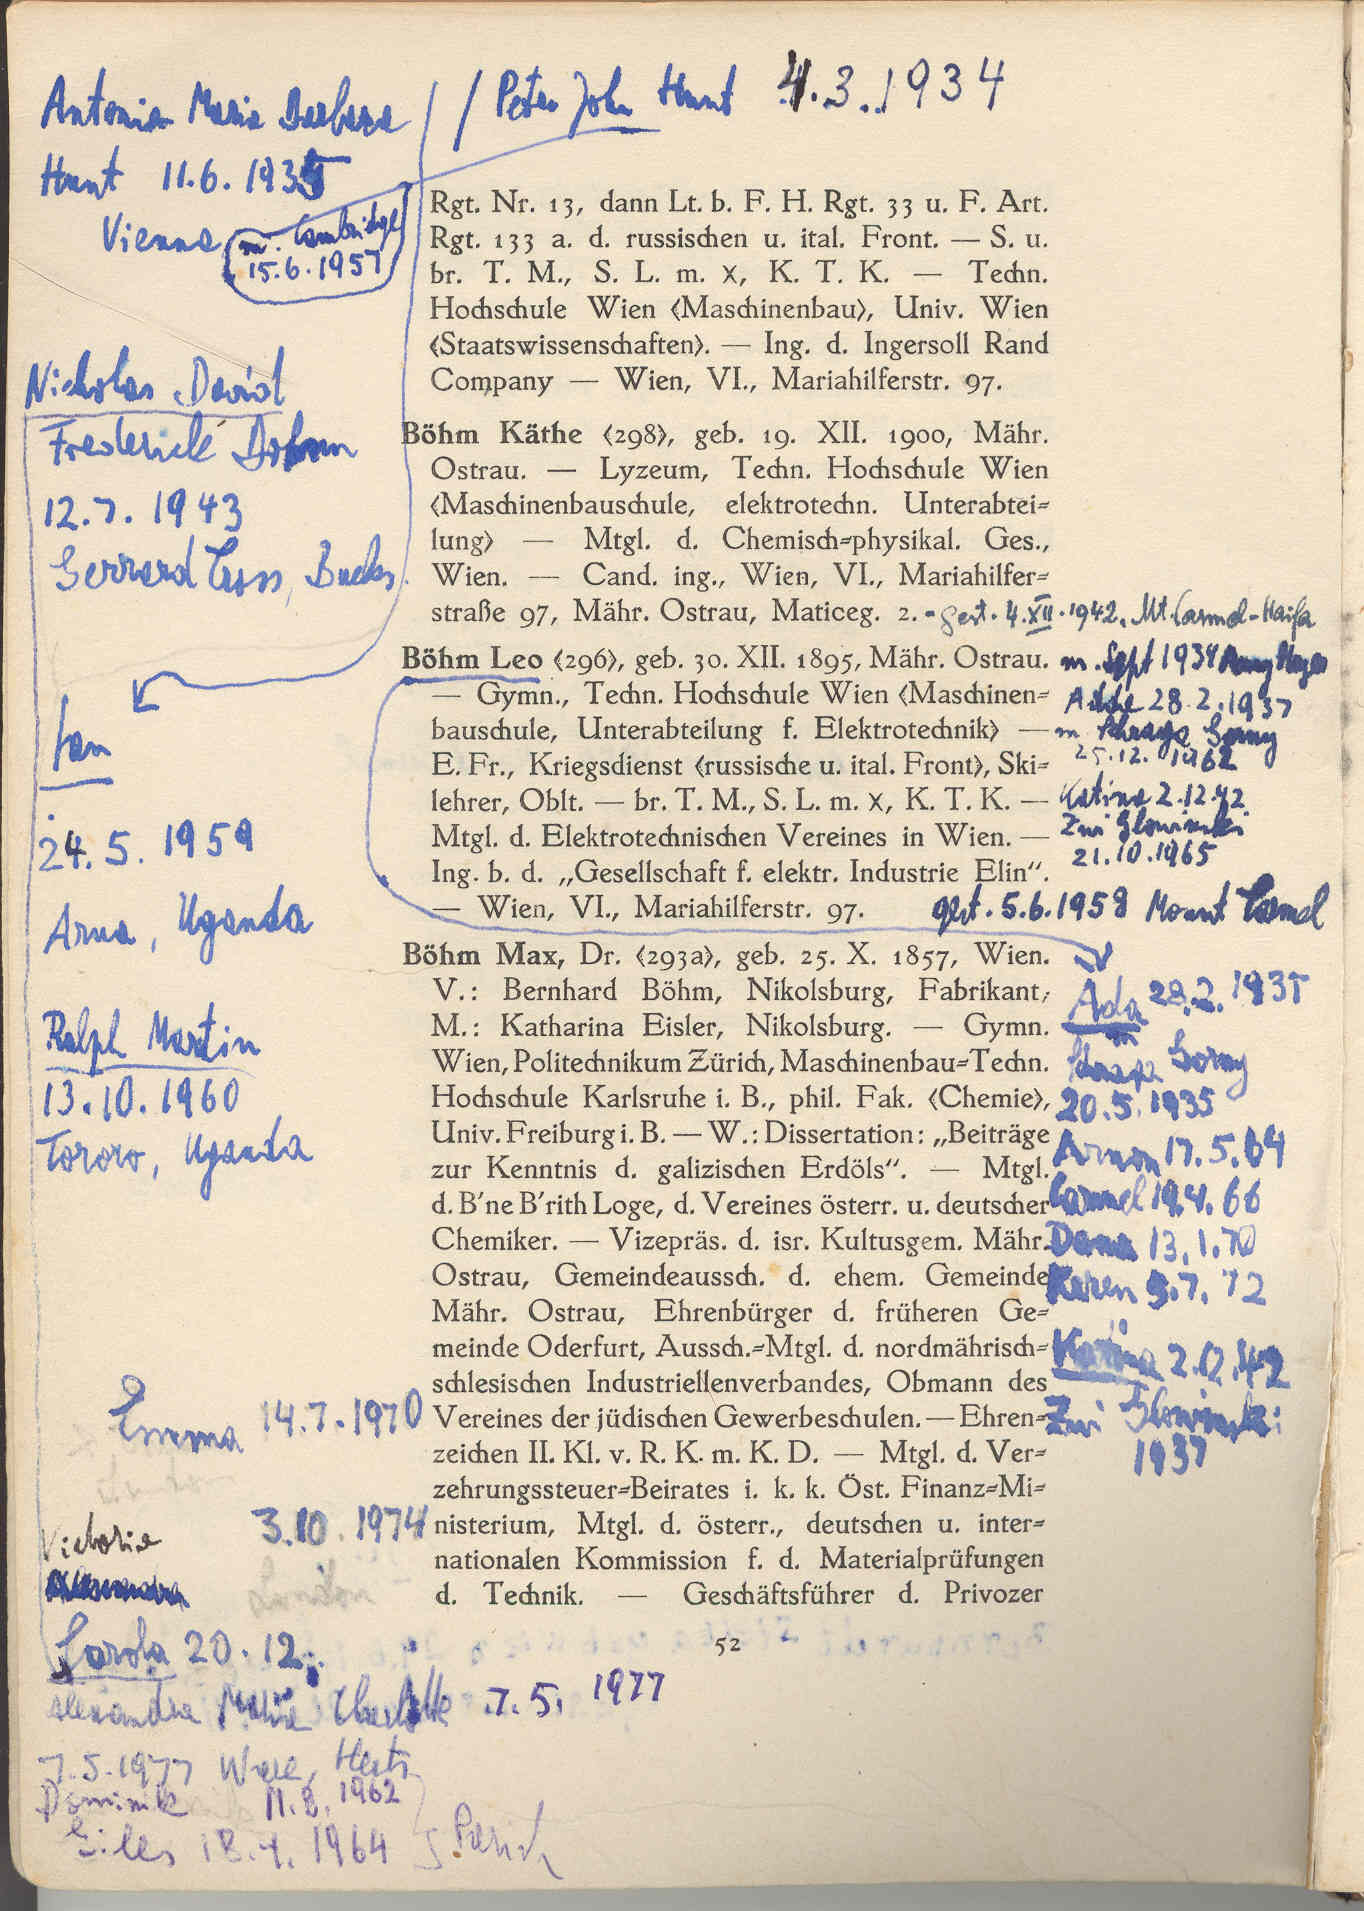 Antonia Maria Barbara / Peter John Hunt 4.3.1934
Hunt 11.6.1935
Vienna
m. Cambridge
15.6.1957
Nicholas David
Frederick
12.7.1943
Gerrard Cross, Bucks.
Ian
24.5.1959
Arua, Uganda
Ralph Martin
13.10.1960
Tororo, Uganda
Emma 14.7.1970
Victoria 3.10.1974
London
Carola 20.12.
Alexandra Maria Charlotte 7.5.1977
7.5.1977 Ware, Herts
Dominik 11.8.1962
Giles 18.4.1964
Rgt. Nr. 13, dann Lt. b. F. H. Rgt. 33 u. F. Art.
Rgt. 133 a. d. russischen u. ital. Front. — S. u.
br. T. M., S. L. m. X, K. T. K. — Techn.
Hochschule Wien ‹Maschinenbau›, Univ. Wien
‹Staatswissenschaften›. — Ing. d. Ingersoll Rand
Company — Wien, VI., Mariahilferstr. 97.
Böhm Käthe ‹298›, geb. 19. XII. 1900, Mähr.
Ostrau. — Lyzeum, Techn. Hochschule Wien
‹Maschinenbauschule, elektrotechn. Unterabtei-
lung› — Mtgl. d. Chemisch-physikal. Ges.,
Wien. — Cand. ing., Wien, VI., Mariahilfer-
straße 97, Mähr. Ostrau, Maticeg. 2. - gest. 4.XII.1942. Mt. Carmel-Haifa
Böhm Leo ‹296›, geb. 30. XII. 1895, Mähr. Ostrau.
— Gymn., Techn. Hochschule Wien ‹Maschinen-
bauschule, Unterabteilung f. Elektrotechnik› —
E. Fr., Kriegsdienst ‹russische u. ital. Front›, Ski-
lehrer, Oblt. — br. T. M., S. L. m. X, K. T. K. —
Mtgl. d. Elektrotechnischen Vereines in Wien. —
Ing. b. d. „Gesellschaft f. elektr. Industrie Elin“.
— Wien, VI., Mariahilferstr. 97. gest. 5.6.1958 Mount Carmel
Böhm Max, Dr. ‹293a›, geb. 25. X. 1857, Wien.
V.: Bernhard Böhm, Nikolsburg, Fabrikant;
M.: Katharina Eisler, Nikolsburg. — Gymn.
Wien, Politechnikum Zürich, Maschinenbau-Techn.
Hochschule Karlsruhe i. B., phil. Fak. ‹Chemie›,
Univ. Freiburg i. B. — W.: Dissertation: „Beiträge
zur Kenntnis d. galizischen Erdöls“. — Mtgl.
d. B'ne B'rith Loge, d. Vereines österr. u. deutscher
Chemiker. — Vizepräs. d. isr. Kultusgem. Mähr.
Ostrau, Gemeindeaussch. d. ehem. Gemeinde
Mähr. Ostrau, Ehrenbürger d. früheren Ge-
meinde Oderfurt, Aussch.-Mtgl. d. nordmährisch-
schlesischen Industriellenverbandes, Obmann des
Vereines der jüdischen Gewerbeschulen. — Ehren-
zeichen II. Kl. v. R. K. m. K. D. — Mtgl. d. Ver-
zehrungssteuer-Beirates i. k. k. Öst. Finanz-Mi-
nisterium, Mtgl. d. österr., deutschen u. inter-
nationalen Kommission f. d. Materialprüfungen
d. Technik. — Geschäftsführer d. Privozer
52
m. Sept 1934
28.2.1937
m Schraga Gorny
25.12.1962
Katina 2.12.42
Zwi Glowinski
21.10.1965
Ada 28.2.1935
m
Schraga Gorny
20.5.1935
Arnon 17.5.64
Carmel 19.4.66
Dana 13.1.70
Karen 9.7.72
Katina 2.12.42
Zwi Glowinski
1937